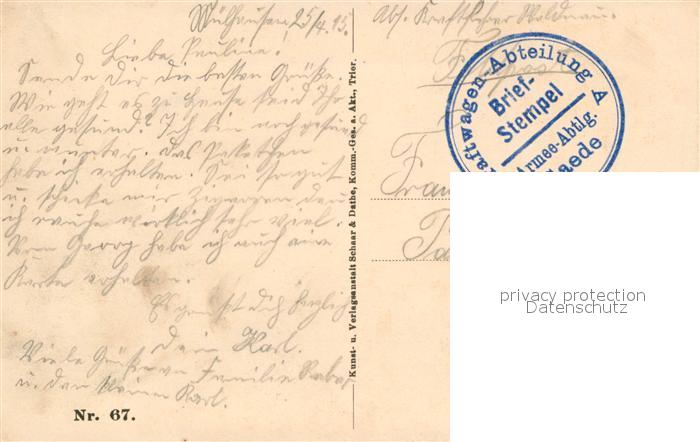 Mülhausen 25/4. 15.
Liebe Pauline!
Sende Dir die besten Grüße.
Wie geht es zu Hause seid Ihr
alle gesund? Ich bin noch gesund
u. munter. Das Paketchen
habe ich erhalten. Sei so gut
u. schicke mir Zigarren denn
ich rauche wirklich sehr viel.
Von Georg habe ich auch eine
Karte erhalten.
Es grüßt Dich herzlich
Dein Karl.
Viele Grüße an Familie
u. den kleinen Karl.
Nr. 67.
Kunst- u. Verlagsanstalt Schaar & Dathe, Komm.-Ges. a. Akt., Trier.
Abs. Kraftfahrer
Feldpost
Kraftwagen-Abteilung A
Brief-
Stempel
Armee-Abtlg.
Gaede
Frau
privacy protection
Datenschutz